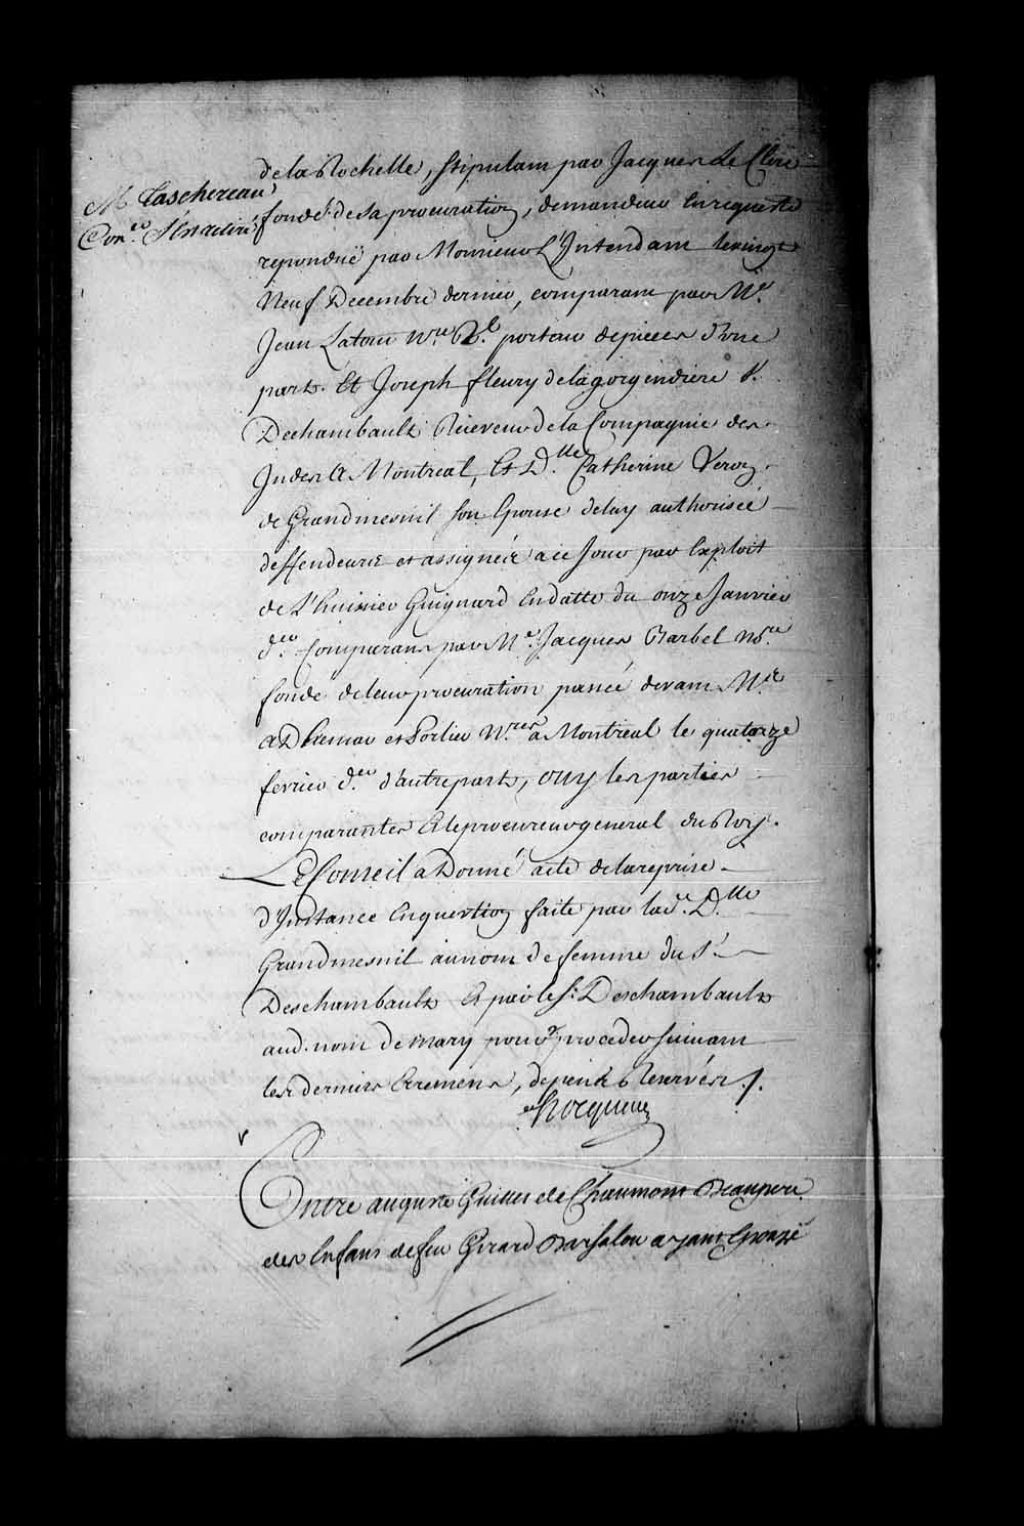 M. Taschereau
Con.er s'En retiré
de la Rochelle, stipulant par Jacques Le Clerc
fondé de sa procuration, demandeur En requeste
repondue par Monsieur L'Intendant le vingt
Neuf Decembre dernier, comparant par M.e
Jean Latour N.re R.l porteur de pieces d'une
part. Et Joseph fleury de la gorgendiere S.
Deschambault Receveur de la Compagnie des
Indes A Montreal, Et D.lle Catherine Veron
de Grandmesnil son Epouse de luy authorisée
deffendeurs et assignée a ce Jour par Exploit
de L'huissier Guignard En datte du onze Janvier
d.er Comparans par M.e Jacques Barbel No.re
fondé de leur procuration passée devant M.e
Adhemar et Porlier N.res a Montreal le quatorze
fevrier d.er d'autre part, ouy les parties
comparantes Et le procureur general du Roy.
Le Conseil a Donné acte de la reprise
d'Instance En question faite par lad.e D.lle
Grandmesnil au nom de femme du S.r
Deschambault Et par le S.r Deschambault
aud. nom de mary pour proceder suivant
les derniers Erremens, depens Reservés ./.
Hocquart
Entre auguste Guillet de Chaumont Beaupere
des Enfans de feu Girard Barsalou ayant Epousé